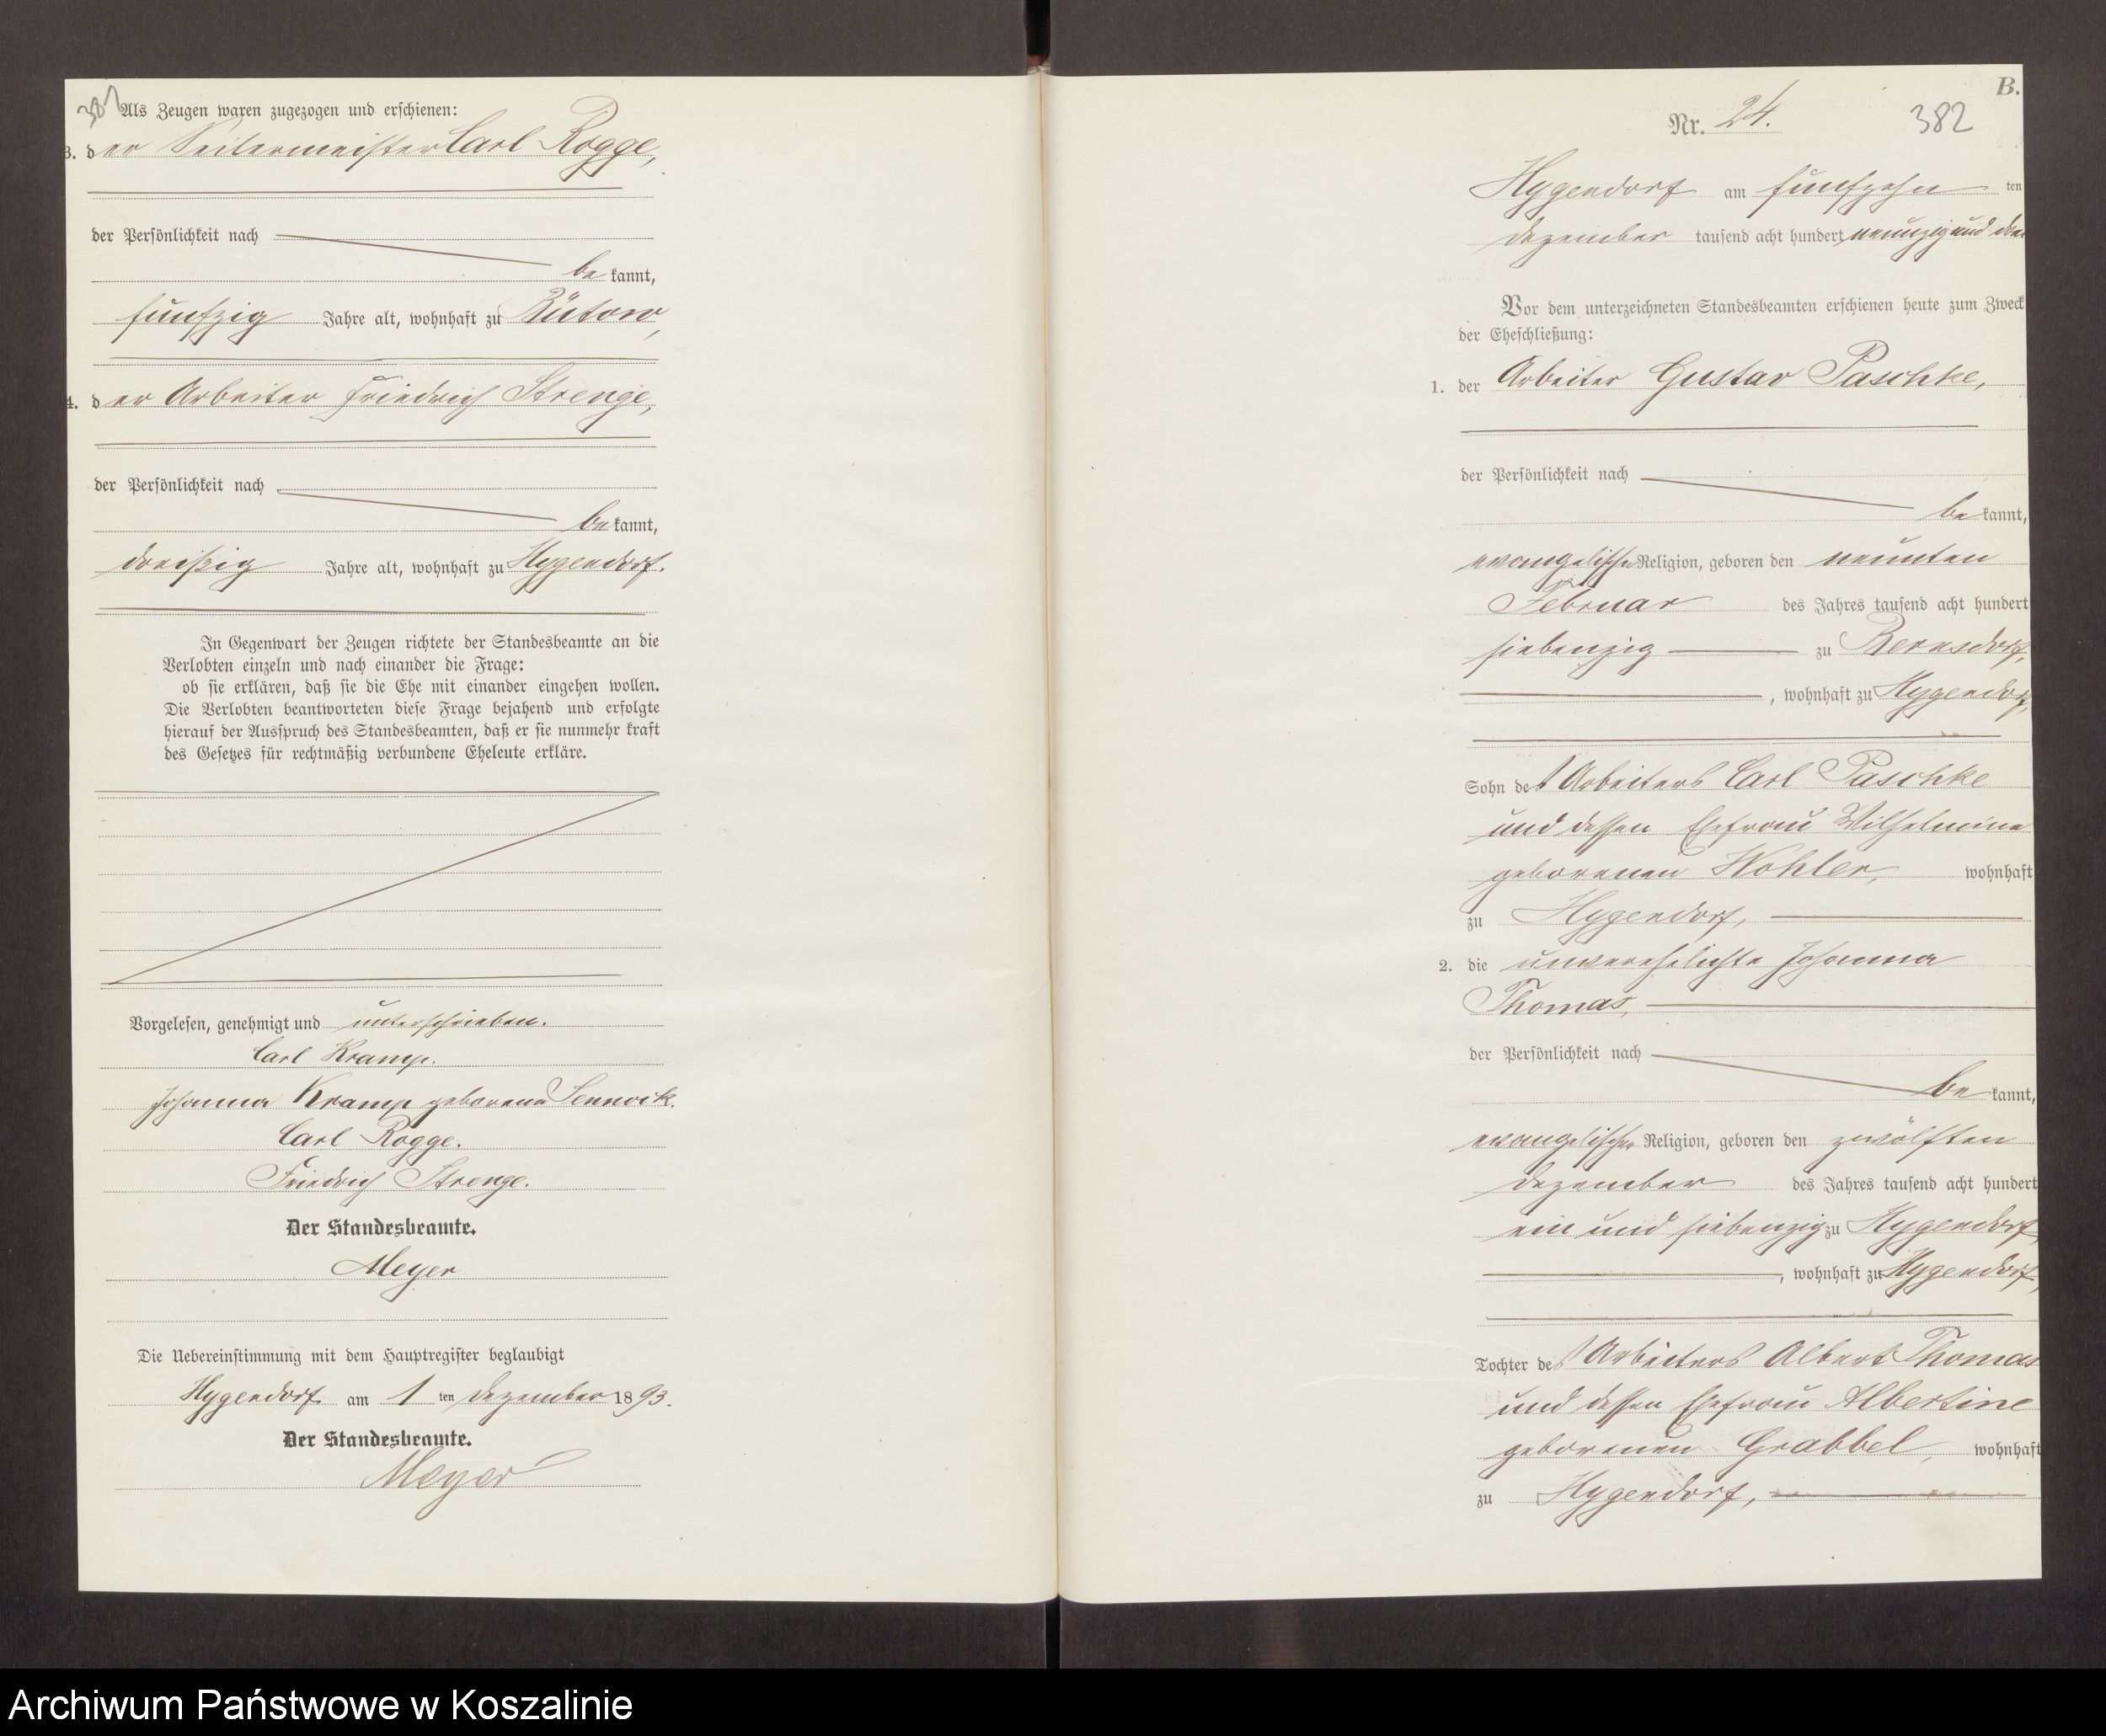 381
Als Zeugen waren zugezogen und erschienen:
3. der Seilermeister Carl Rogge,
der Persönlichkeit nach
be kannt,
fünfzig Jahre alt, wohnhaft zu Bütow,
4. der Arbeiter Friedrich Strenge,
der Persönlichkeit nach
be kannt,
dreißig Jahre alt, wohnhaft zu Hygendorf.
In Gegenwart der Zeugen richtete der Standesbeamte an die
Verlobten einzeln und nach einander die Frage:
ob sie erklären, daß sie die Ehe mit einander eingehen wollen.
Die Verlobten beantworteten diese Frage bejahend und erfolgte
hierauf der Ausspruch des Standesbeamten, daß er sie nunmehr kraft
des Gesetzes für rechtmäßig verbundene Eheleute erkläre.
Vorgelesen, genehmigt und unterschrieben.
Carl Kramp.
Johanna Kramp geborene Sennock.
Carl Rogge.
Friedrich Strenge.
Der Standesbeamte.
Meyer
Die Uebereinstimmung mit dem Hauptregister beglaubigt
Hygendorf am 1 ten Dezember 1893.
Der Standesbeamte.
Meyer
B.
Nr. 24.
382
Hygendorf am fünfzehn ten
Dezember tausend acht hundert neunzig und drei
Vor dem unterzeichneten Standesbeamten erschienen heute zum Zweck
der Eheschließung:
1. der Arbeiter Gustav Paschke,
der Persönlichkeit nach
be kannt,
evangelischer Religion, geboren den neunten
Februar des Jahres tausend acht hundert
siebenzig zu Bernsdorf,
, wohnhaft zu Hygendorf,
Sohn des Arbeiters Carl Paschke
und dessen Ehefrau Wilhelmine
geborenen Wohler, wohnhaft
zu Hygendorf,
2. die unverehelichte Johanna
Thomas,
der Persönlichkeit nach
be kannt,
evangelischer Religion, geboren den zwölften
Dezember des Jahres tausend acht hundert
ein und siebenzig zu Hygendorf,
, wohnhaft zu Hygendorf,
Tochter des Arbeiters Albert Thomas
und dessen Ehefrau Albertine
geborenen Grabbel, wohnhaft
zu Hygendorf,
Archiwum Państwowe w Koszalinie